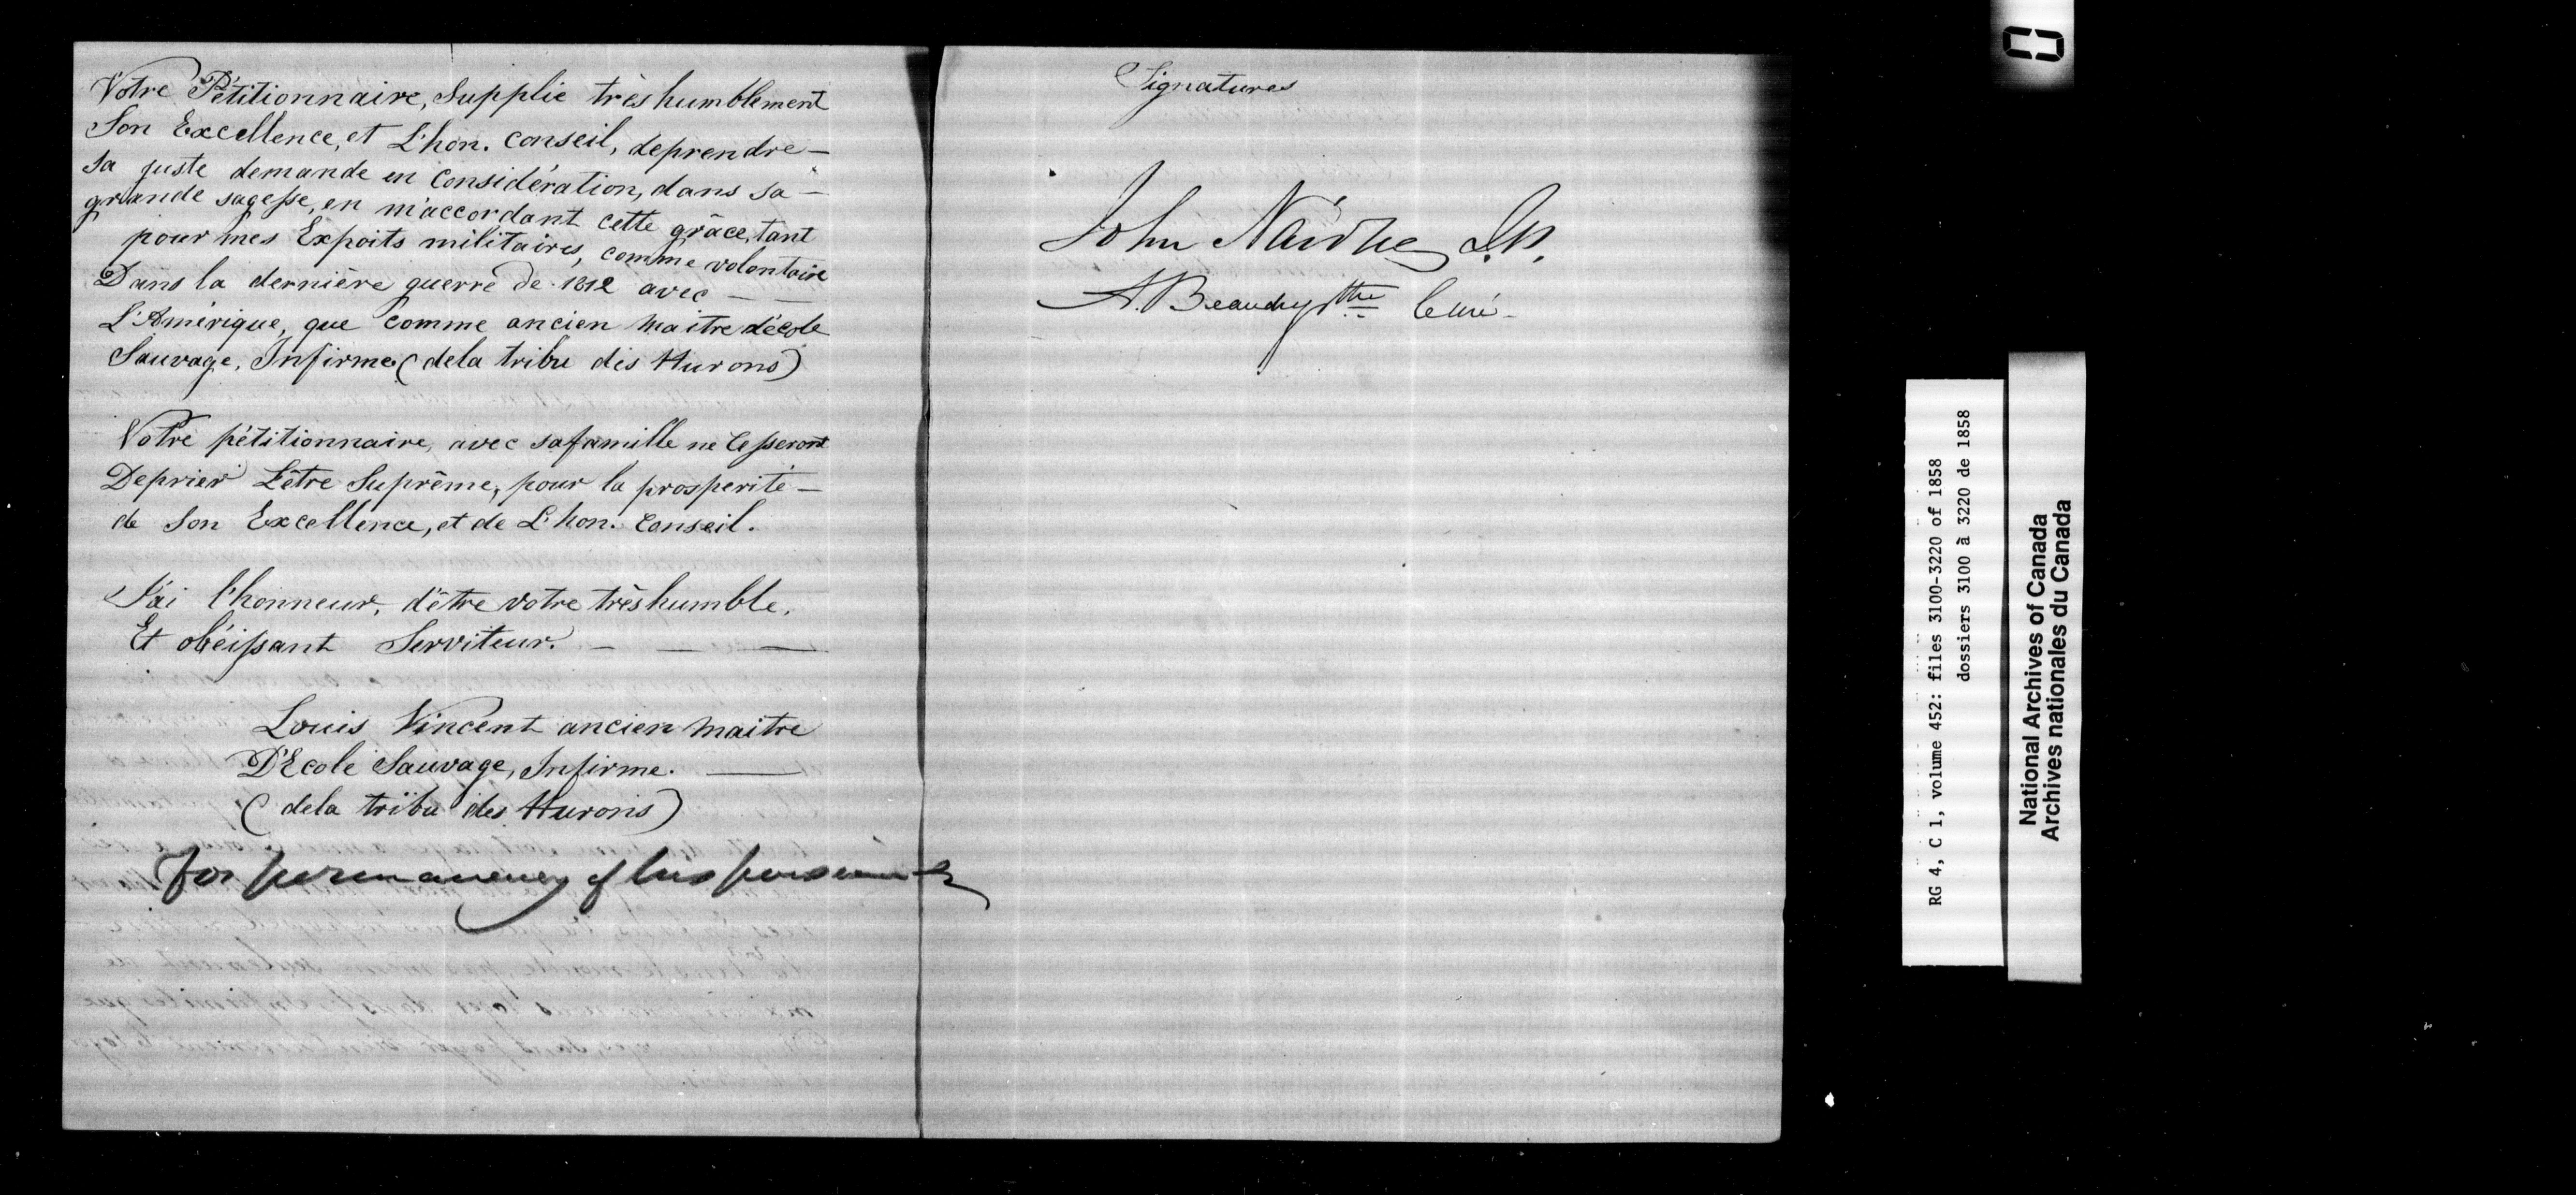 Votre Pétitionnaire, Supplie très humblement
Son Excellence, et L'hon. Conseil, deprendre —
sa juste demande en Considération, dans sa —
grande sagesse, en m'accordant cette grâce, tant
pour mes Expoits militaires, comme volontaire
Dans la dernière guerre de 1812 avec — —
L'Amérique, que comme ancien maitre d'école
Sauvage, Infirme (dela tribu des Hurons)
Votre pétitionnaire, avec safamille ne Cesseront
Deprier L'être Suprême, pour la prosperité —
de Son Excellence, et de L'hon. Conseil.
J'ai l'honneur, d'être votre très humble,
Et obéissant Serviteur. — — —
Louis Vincent ancien maitre
D'Ecole Sauvage, Infirme. —
(dela tribu des Hurons)
for permanency of his pension
Signatures
John Nairne J.P.
A. Beaudry Ptre Curé -
RG 4, C 1, volume 452: files 3100-3220 of 1858
dossiers 3100 à 3220 de 1858
National Archives of Canada
Archives nationales du Canada